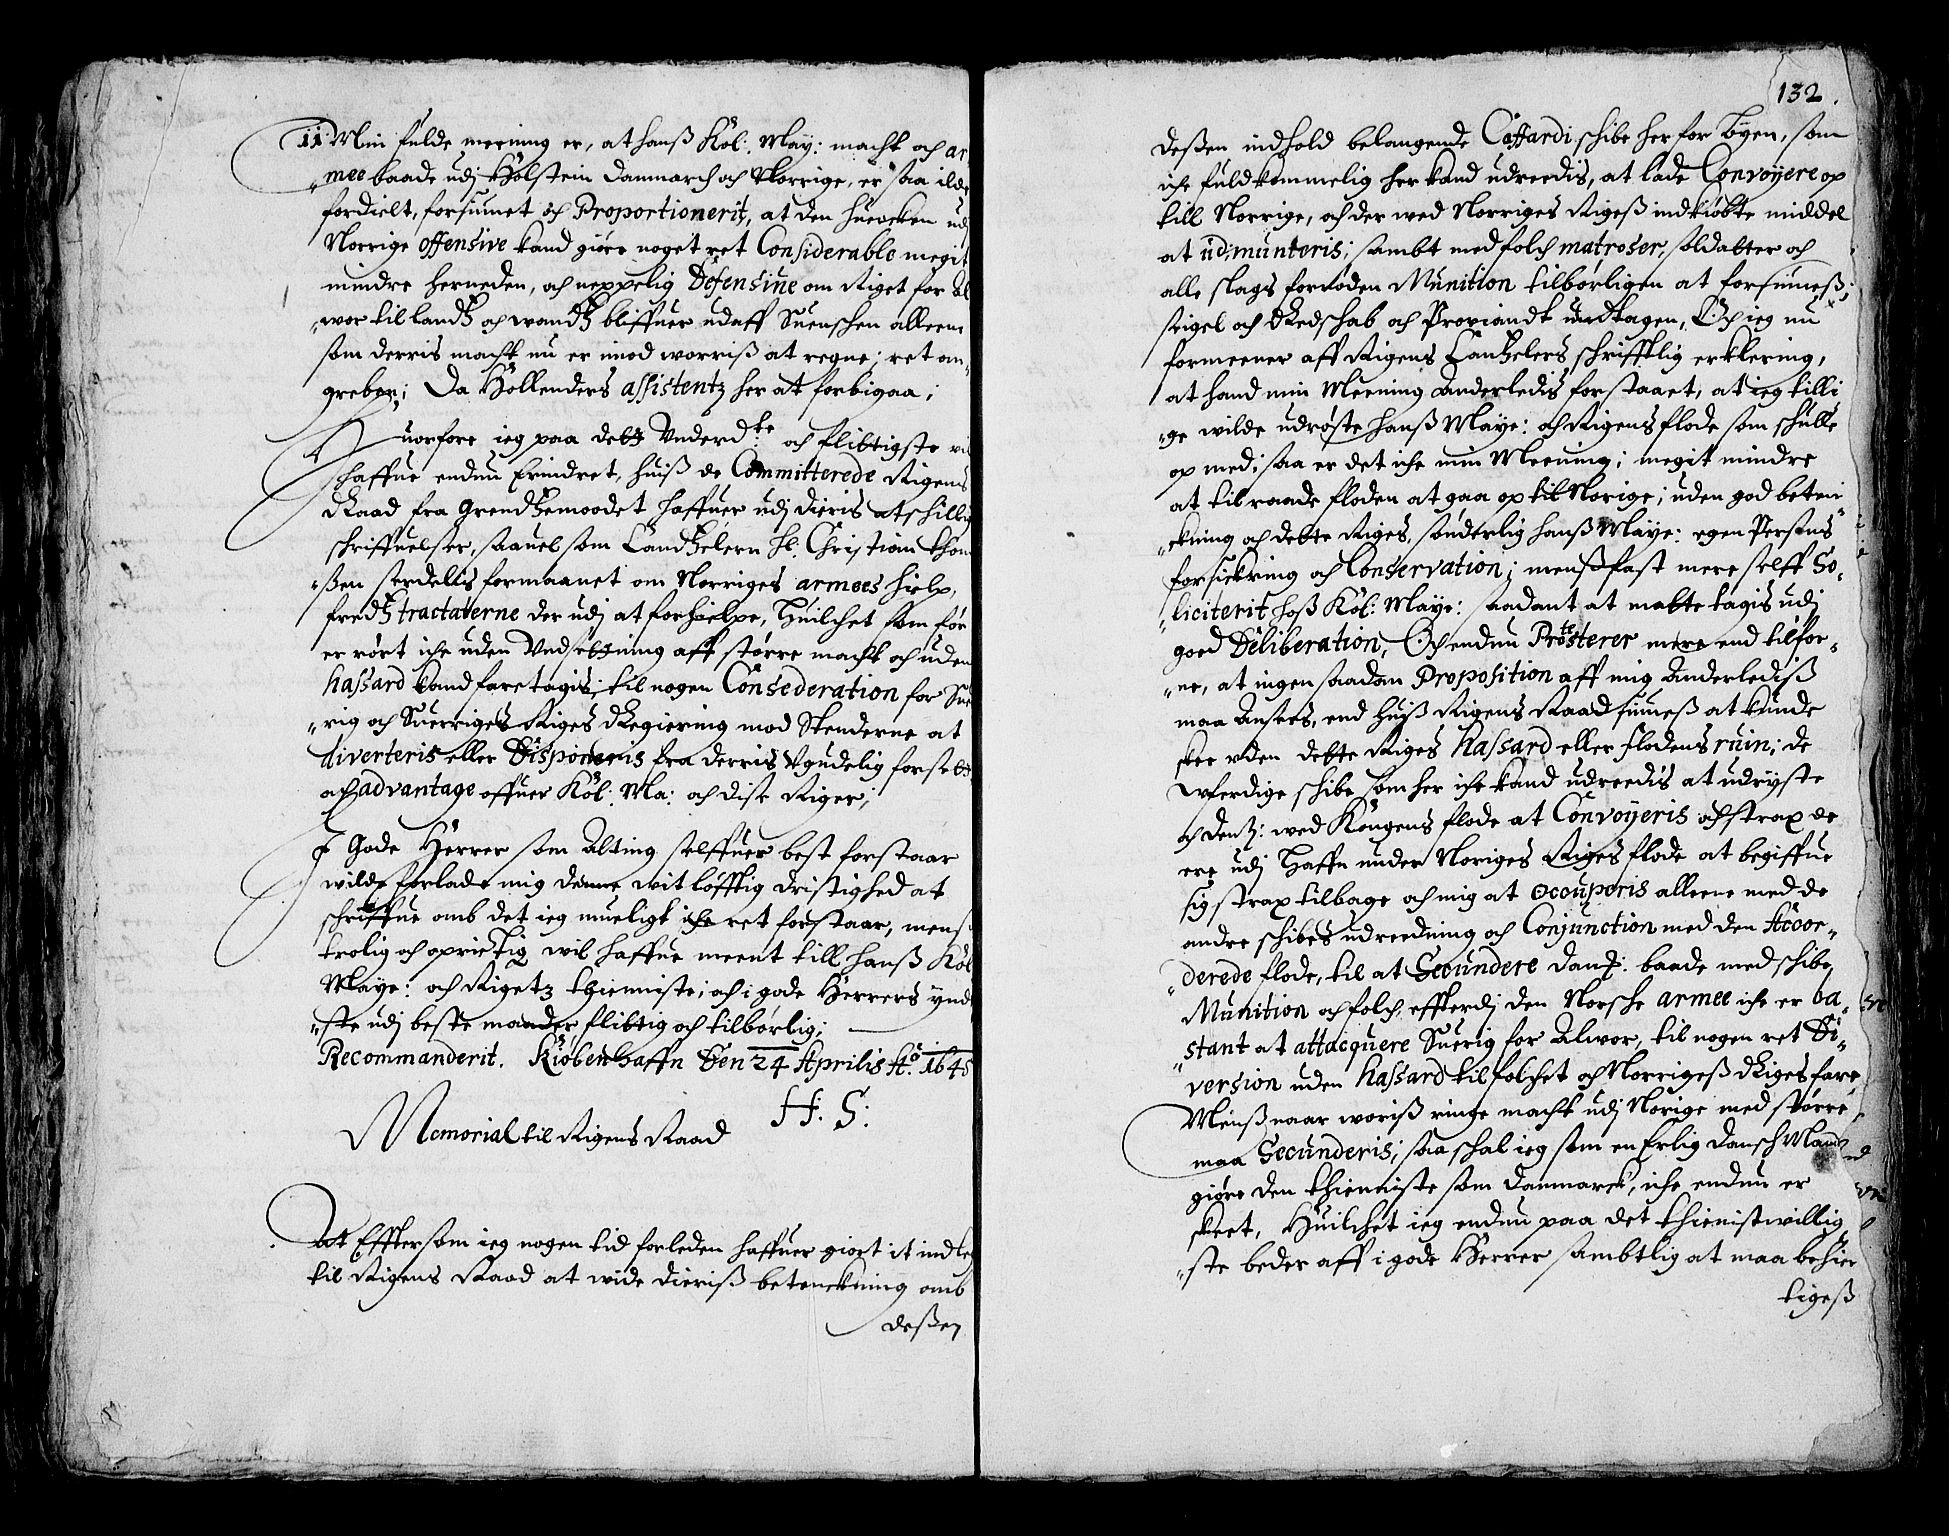 11 Min fulde meening er, at hanß Köl: May: macht och ar
mee baade udj Holstein Danmarch och Norrige, er saa ilde
fordielt, forsiunet och Proportionerit, at den huercken udj
Norrige offensive kand giøre noget ret Considerable megit
mindre herneden, och neppelig Defensive om Riget for al
wor til landtz och wandtz bliffuer udaff Suenschen alleene
som derris macht nu er imod worriß at regne; ret an
greben; Da Hollenders assistentz her at forbigaa;
Huorfore ieg paa dett Underdte och flittigste vil
haffue endnu Erindret, huiß de Committerede Rigens
Raad fra Grendtzemoodet haffuer udj dieris atschillig
schriffuelser, saauel som Candtzelern Hl: Christian thom
ßen serdellis formaanet om Norriges armees hielp,
fredtz tractaterne der udj at forhielpe, Huilchet som før
er rørt iche uden Undsettning aff større macht och uden
hassard kand faretagis; til nogen Consederation for Sue
rig och Suerriges Riges Regiering mod Stenderne at
diverteris eller Disponeris fra derris Ugudelig forsett
och advantage offuer Köl: Ma: och dise Riger;
I Gode Herrer som Alting selffuer best forstaar
wilde forlade mig denne witløfftig dristighed at
schriffue omb det ieg mueligt iche ret forstaar, mens
trolig och oprictig wil haffue meent till hanß Köl
Maye: och Rigetz thienniste; och i gode Herrers ynd
ste udj beste maader flittig och tilbørlig;
Recommanderit. Kiøbenhaffn Den 24 Aprilis Ao. 1645
H: S:
Memorial til Rigens Raad
At Efftersom ieg nogen tid forleden haffuer giort it indleg
til Rigens Raad at wide dieriß betenckning omb
deßen
132.
deßen indhold belangende Coffardi schibe her for Byen, som
iche fuldkommelig her kand udreedis, at lade Convoyere op
till Norrige, och der wed Norriges Rigeß indkiøbte middel
at udmunteris; sambt med folch matroser, soldatter och
alle slags fornøden Munition tilbørligen at forsiuneß;
seigel och Redschab och Proviandt undtagen, Och ieg nu
formeener aff Rigens Cantzelers schrifftlig erklering,
at hand min Meening Anderledis forstaaet, at ieg tilli
ge wilde udrøste hanß Maye: och Rigens flode som schulle
op med; saa er det iche min Meening; megit mindre
at tilraade floden at gaa op til Norige; uden god beten
ckning och dette Riges, sønderlig hanß Maye: egen Persons
forsickring och Conservation; mens fast mere selff So
liciterit hoß Köl: Maye: saadant at matte tagis udj
goed Deliberation, Och endnu Protesterer mere end tilfor
ne, at ingen saadan Proposition aff mig Anderlediß
maa Ansees, end huiß Rigens Raad siuneß at kunde
skee uden dette Riges hassard eller flodens ruin; de
uferdige schibe som her iche kand udreedis at udryste
och wed Kongens flode at Convoyeris och strax de
ere udj Haffn under Noriges Riges flode at begiffue
sig strax tilbage och mig at occuperis alleene med de
andre schibes udreedning och Conjunction med den Accor
derede flode, til at Secundere baade med schibe
Munition och folch, efftterdj den Norsche armee iche er ba
stant at attacquere Suerig for Alvor, til nogen ret Di
version uden hassard til folchet och Norrigeß Riges fare
Menß naar woriß ringe macht udj Norige med større
maa Secunderis; saa schal ieg som en Erlig Dansch Mand
giøre den thienniste som Danmarck, iche endnu er
skeet, Huilchet ieg endnu paa det thienistwillig
ste beder aff i gode Herrer sambtlig at maa behier
tigeß